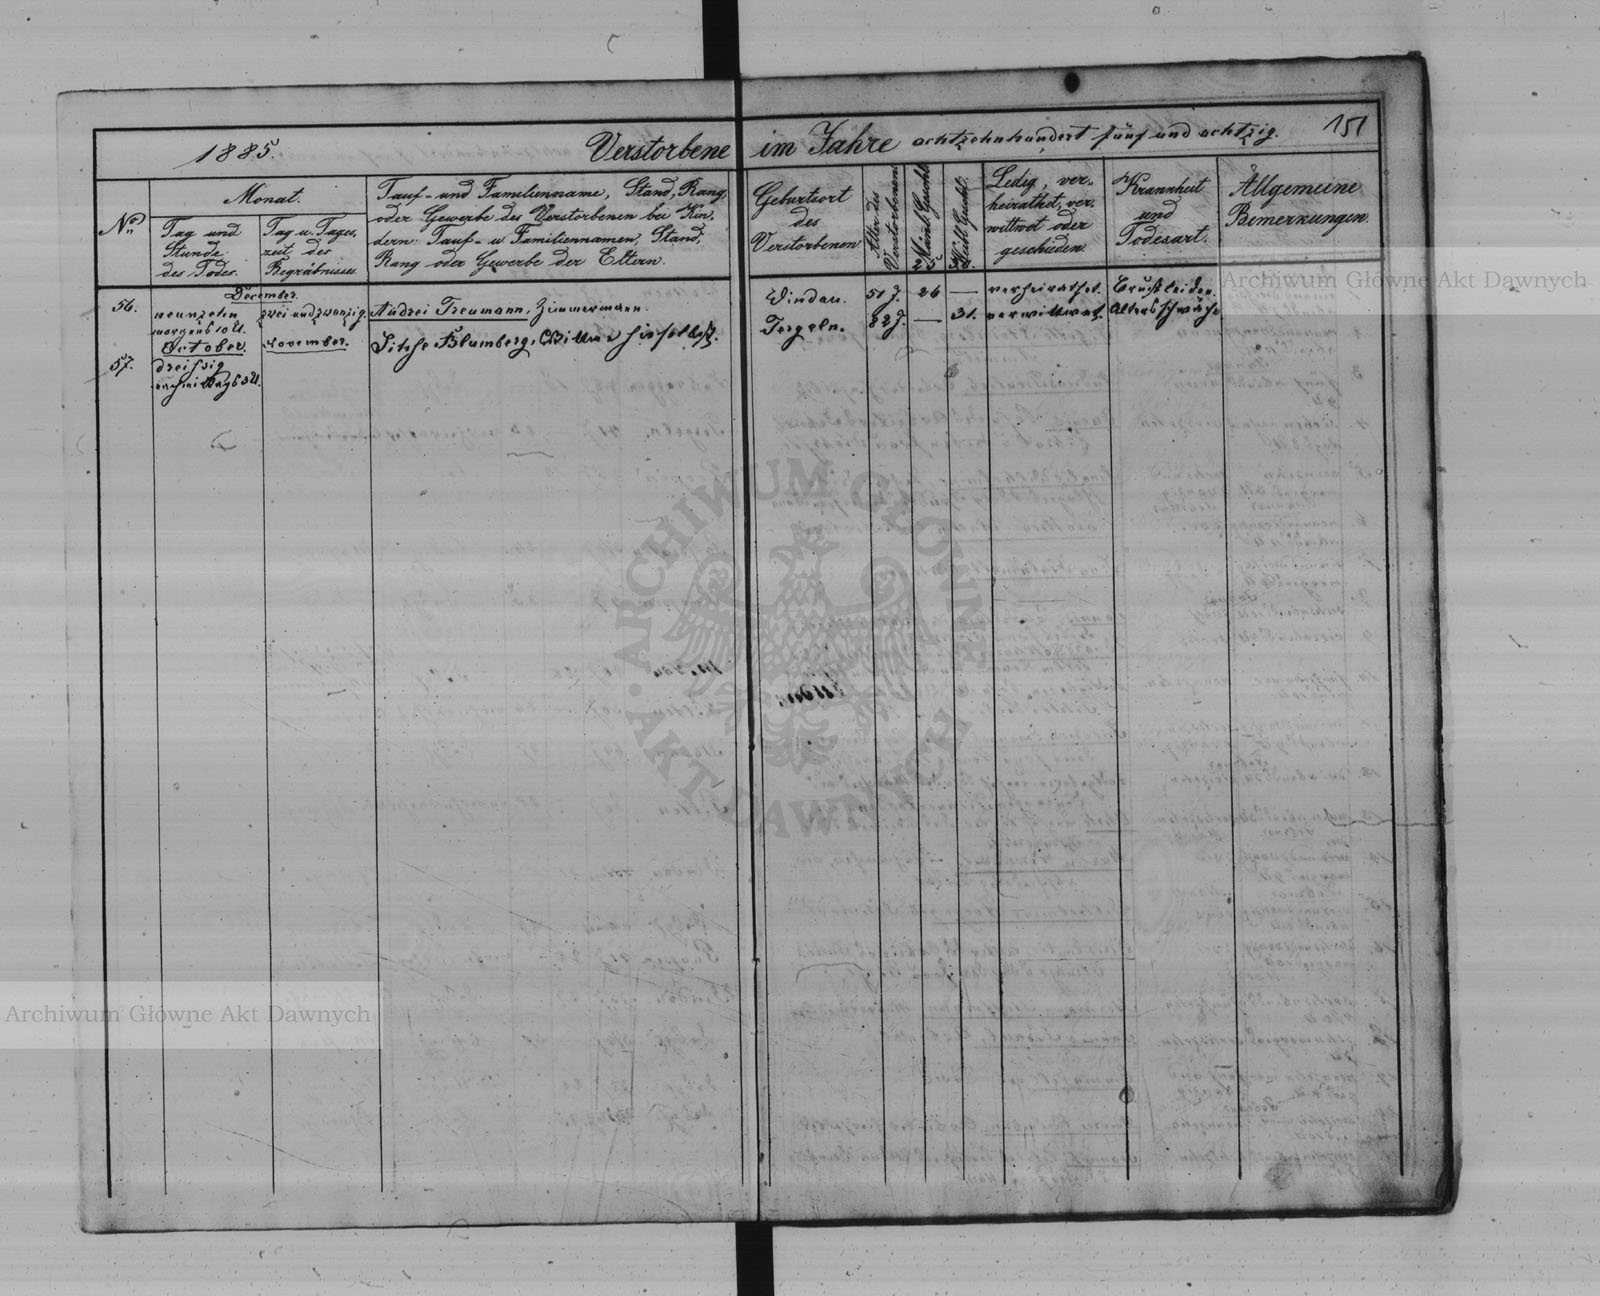 151
1885.
Verstorbene im Jahre achtzehnhundert fünf und achtzig.
No.
Monat.
Tag und
Stunde
des Todes.
Tag u. Tages,
zeit des
Begräbnisses.
Tauf- und Familienname, Stand, Rang,
oder Gewerbe des Verstorbenen bei Kin,
dern: Tauf- u Familiennamen, Stand,
Rang oder Gewerbe der Eltern.
Geburtsort
des
Verstorbenen
Alter des
Verstorbenen
Männl. Geschl.
25.
Weibl. Geschl.
Ledig, ver-
heirathet, ver,
wittwet oder
geschieden.
Krankheit
und
Todesart.
Allgemeine
Bemerkungen.
December.
56.
neunzehn
morgens 10 U.
zwei und zwanzig.
Andrei Treumann, Zimmermann.
Windau.
51 J.
26
—
verheirathet.
Brustleiden.
October.
November.
57.
dreißig
nachmittags 3 U.
Blumberg, Wittwe hieselbst.
Tergeln.
82 J.
—
31.
verwittwet.
Altersschwäche
ARCHIWUM GŁÓWNE AKT DAWNYCH
Archiwum Główne Akt Dawnych
Archiwum Główne Akt Dawnych